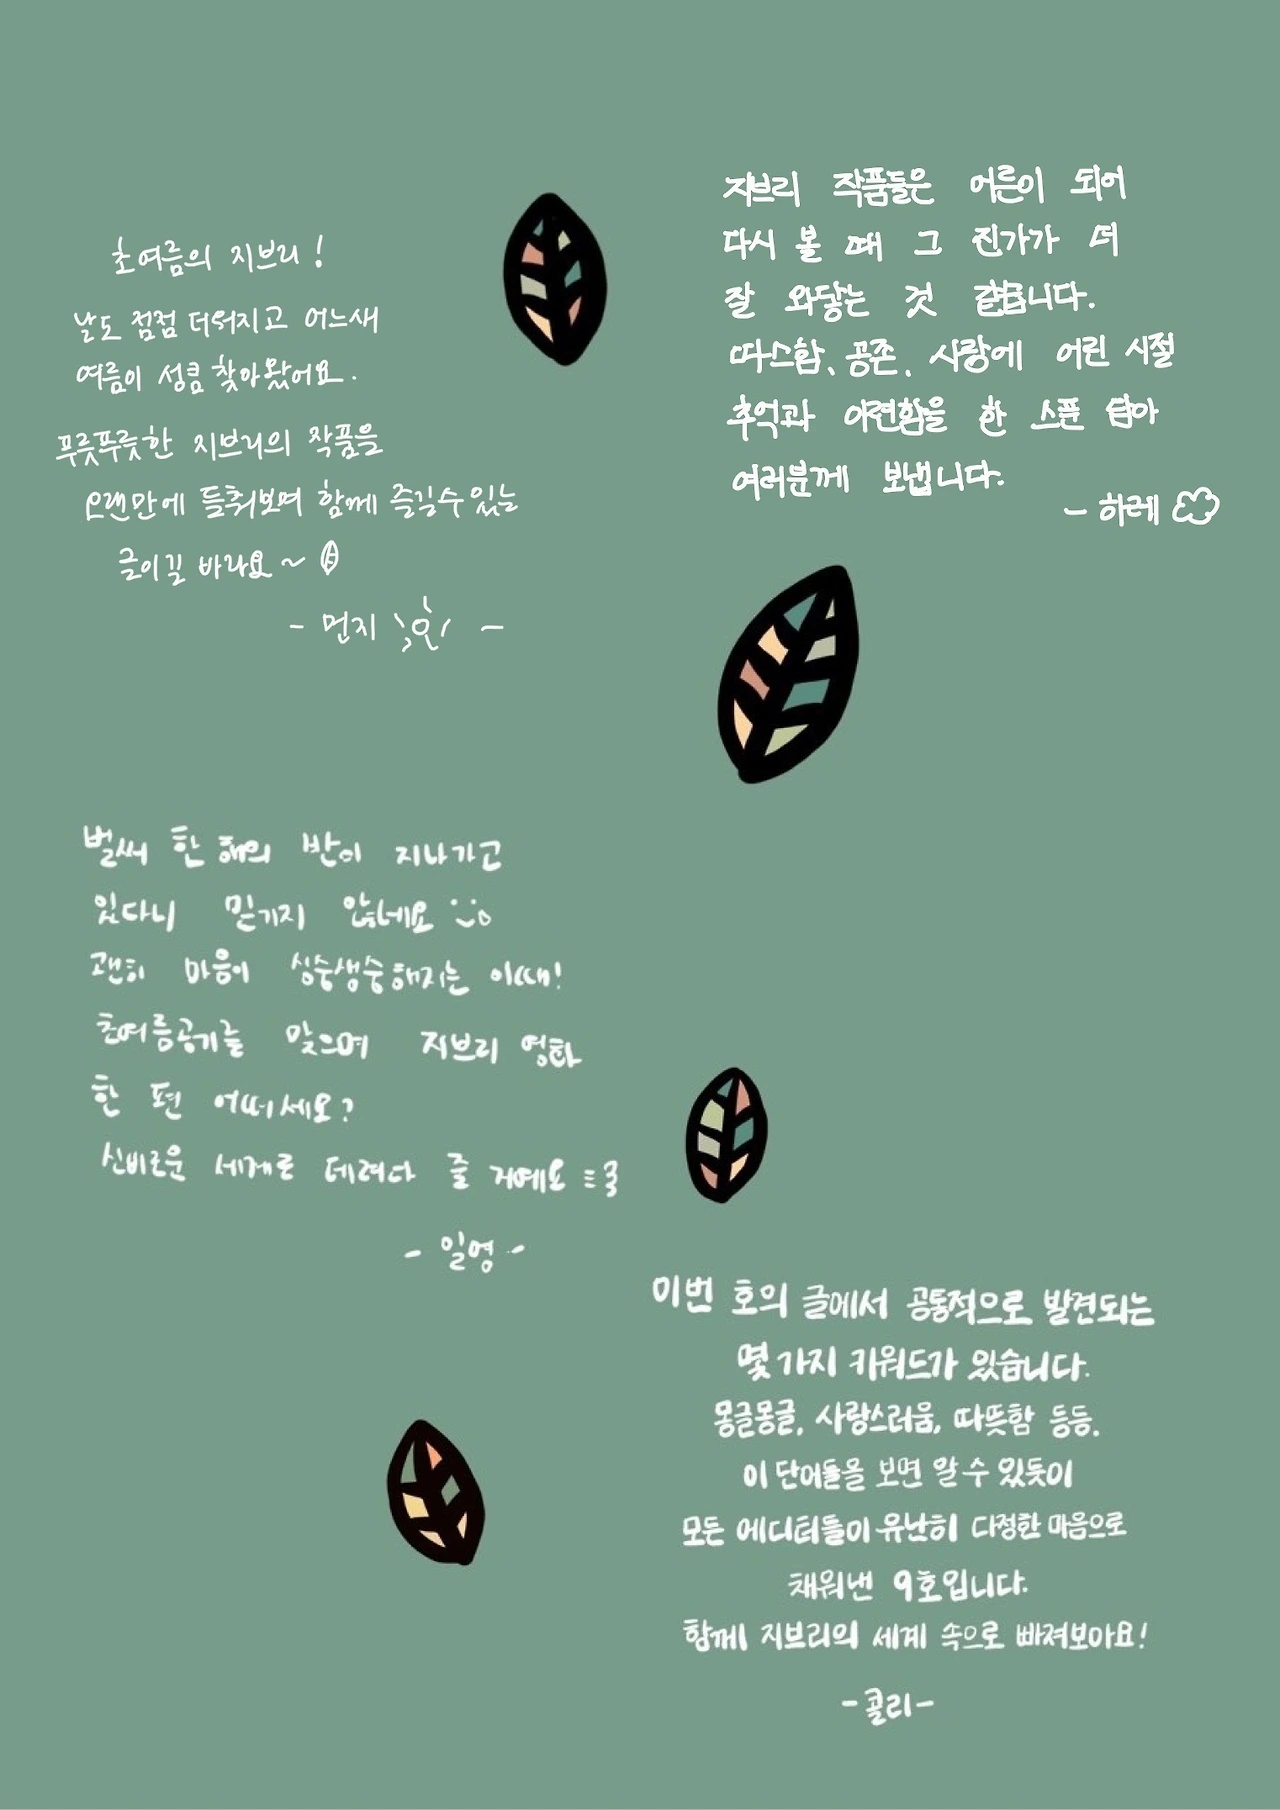 초여름의 지브리!
날도 점점 더워지고 어느새
여름이 성큼 찾아왔어요.
푸릇푸릇한 지브리의 작품을
오랜만에 들춰보며 함께 즐길수있는
글이길 바라요~
- 먼지 -
지브리 작품들은 어른이 되어
다시 볼 때 그 진가가 더
잘 와닿는 것 같습니다.
따스함, 공존, 사랑에 어린 시절
추억과 아련함을 한 스푼 담아
여러분께 보냅니다.
- 하레
벌써 한 해의 반이 지나가고
있다니 믿기지 않네요
괜히 마음이 싱숭생숭해지는 이때!
초여름공기를 맞으며 지브리 영화
한 편 어떠세요?
신비로운 세계로 데려다 줄 거예요
- 일영 -
이번 호의 글에서 공통적으로 발견되는
몇 가지 키워드가 있습니다.
몽글몽글, 사랑스러움, 따뜻함 등등.
이 단어들을 보면 알 수 있듯이
모든 에디터들이 유난히 다정한 마음으로
채워낸 9호입니다.
함께 지브리의 세계 속으로 빠져보아요!
- 콜리 -